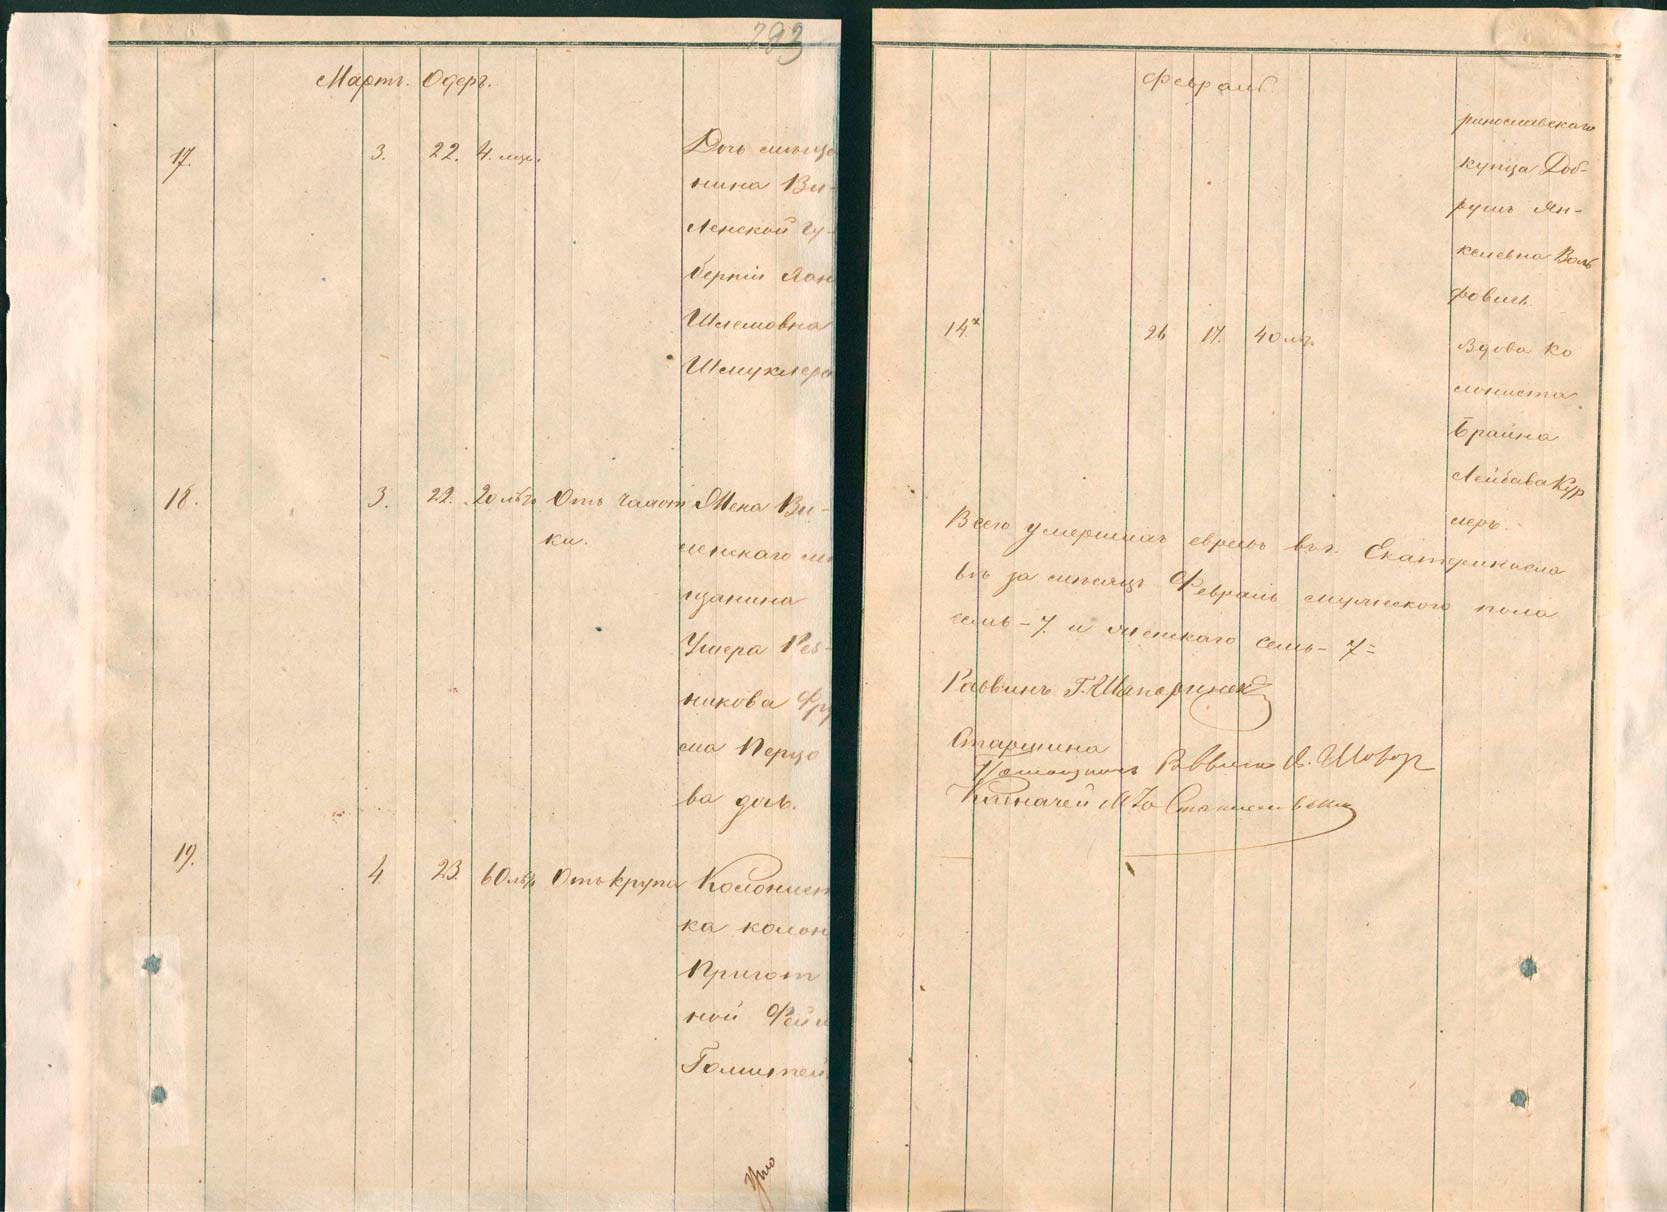 793
Мартъ. Одеръ.
17. 3. 22. 4. мѣс. Дочь мѣща
нина Ви-
ленской гу-
берніи
Шлемовна
Шмуклеръ
18. 3. 22. 20 лѣтъ Отъ чахот Жена Ви-
ки. ленскаго мѣ
щанина
Ушера Рез-
никова Фру
ма Перцо
ва дочь.
19. 4. 23. 60 лѣтъ Отъ крупа Колонист
ка колон
Пригот
ной Фейга
Голштей
Февраль
ринославскаго
купца Доб-
рушъ Ян-
келевна Воль
фовичъ.
14. 26 17. 40 лѣт. Вдова ко
лониста
Брайна
Лейбова Кур
леръ.
Всего умершихъ евреевъ въ г. Екатериносла
вѣ за мѣсяцъ Февраль мужескаго пола
семь - 7. и женскаго семь - 7=
Раввинъ Г. Шапоринскій
Старшина
Помощникъ Раввина
Казначей